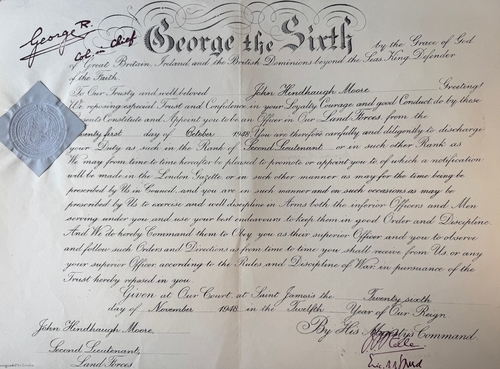 George R.
Col in Chief
George the Sixth by the Grace of God
Great Britain, Ireland and the British Dominions beyond the Seas King, Defender
of the Faith.
To Our Trusty and well beloved John Hindhaugh Moore Greeting!
We reposing especial Trust and Confidence in your Loyalty Courage and good Conduct do by these
Constitute and Appoint you to be an Officer in Our Land Forces from the
first day of October 1948. You are therefore carefully and diligently to discharge
your Duty as such in the Rank of Second Lieutenant or in such other Rank as
We may from time to time hereafter be pleased to promote or appoint you to of which a notification
will be made in the London Gazette or in such other manner as may for the time being be
prescribed by Us in Council, and you are in such manner and on such occasions as may be
prescribed by Us to exercise and well discipline in Arms both the inferior Officers and Men
serving under you and use your best endeavours to keep them in good Order and Discipline.
And We do hereby Command them to Obey you as their superior Officer and you to observe
and follow such Orders and Directions as from time to time you shall receive from Us, or any
your superior Officer according to the Rules and Discipline of War in pursuance of the
Trust hereby reposed in you.
Given at Our Court at Saint James's the Twenty sixth
day of November 1948 in the Twelfth Year of Our Reign
By His Majesty's Command.
John Hindhaugh Moore
Second Lieutenant,
Land Forces